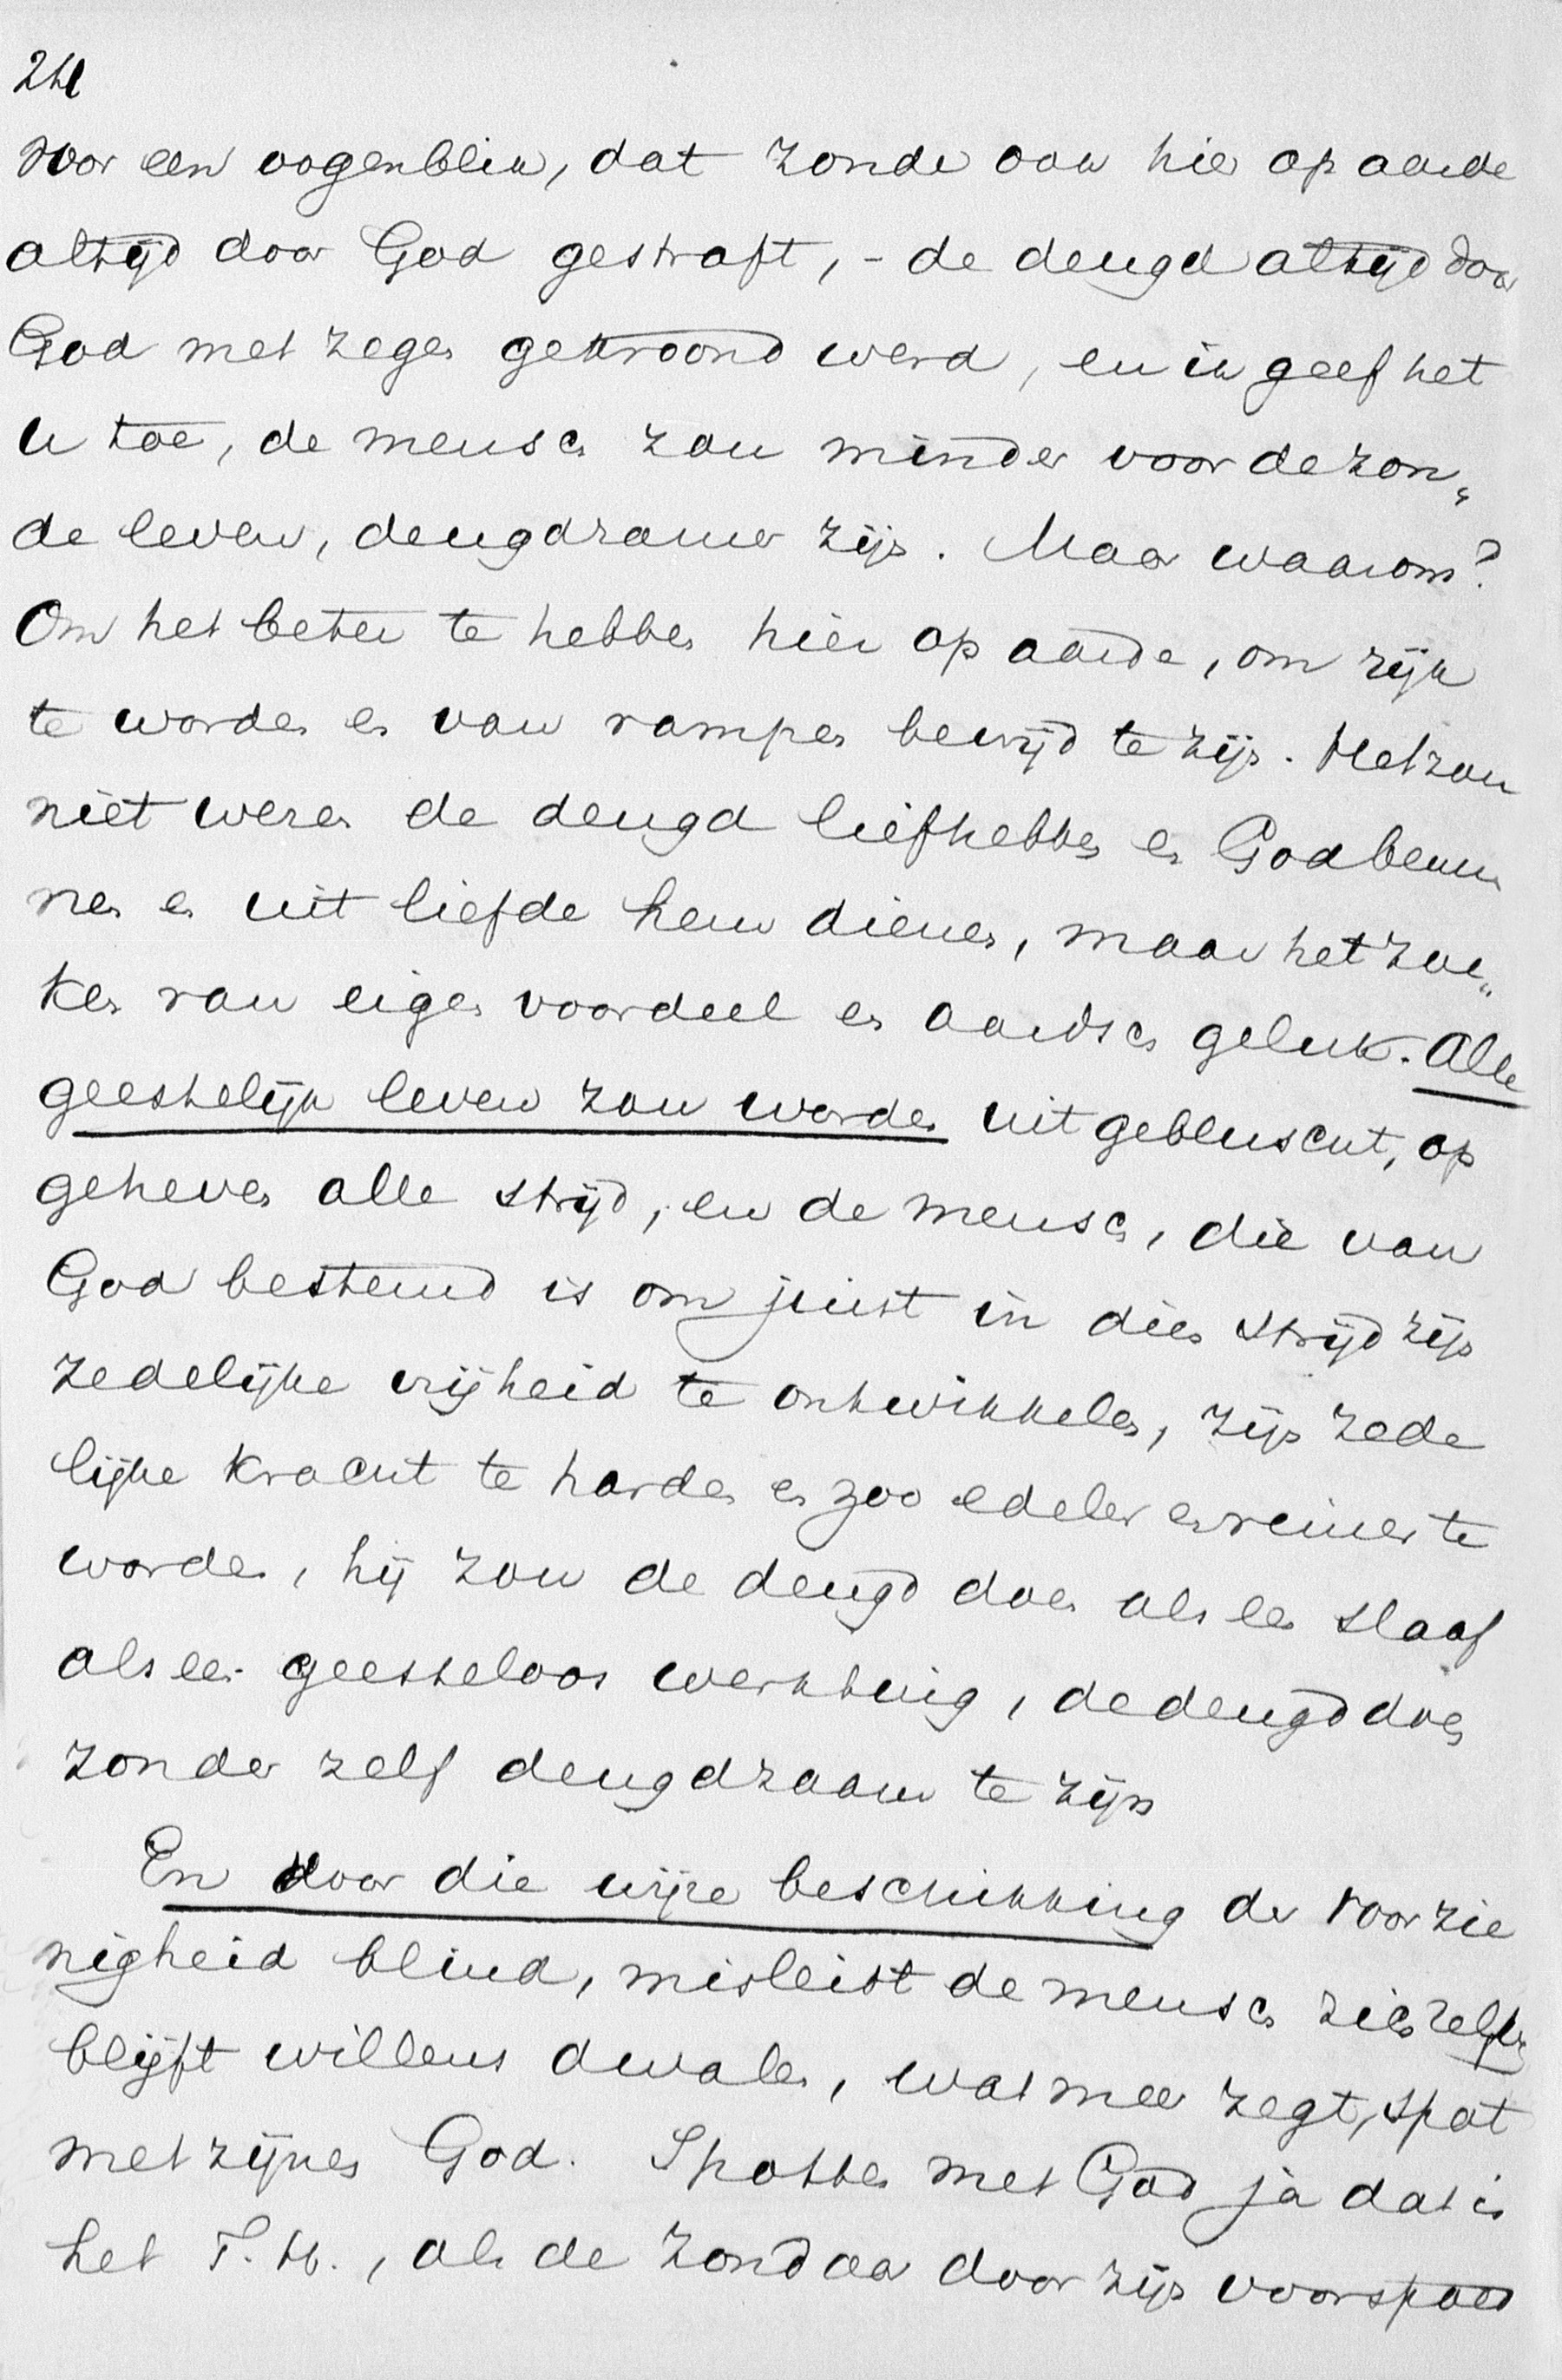 voor een oogenblik, dat zonde ook hier op aarde
altijd door God gestraft, - de deugd altijd door
God met zegen gekroond werd, en ik geef het
u toe, de mensch zou minder voor de zon„
de leven, deugdzamer zijn. Maar waarom?
Om het beter te hebben hier op aarde, om rijk
te worden en van rampen bevrijd te zijn. Het zou
niet wezen de deugd liefhebben en God bemin
nen en uit liefde hem dienen, maar het zoe„
ken van eigen voordeel en aardsch geluk. Alle
geestelijk leven zou worden uitgebluscht, op
geheven alle strijd, en de mensch, die van
God bestemd is om juist in dien strijd zijn
zedelijke vrijheid te ontwikkelen, zijn zede
lijke kracht te harden en zoo edeler en reiner te
worden, hij zou de deugd doen als een slaaf
als een geesteloos werktuig, de deugd doen
zonder zelf deugdzaam te zijn
En door die wijze beschikking der voorzie
nigheid blind, misleidt de mensch zich zelf en
blijft willens dwalen, wat meer zegt, spot
met zijnen God. Spotten met God ja dat is
het T. H., als de zondaar door zijn voorspoed